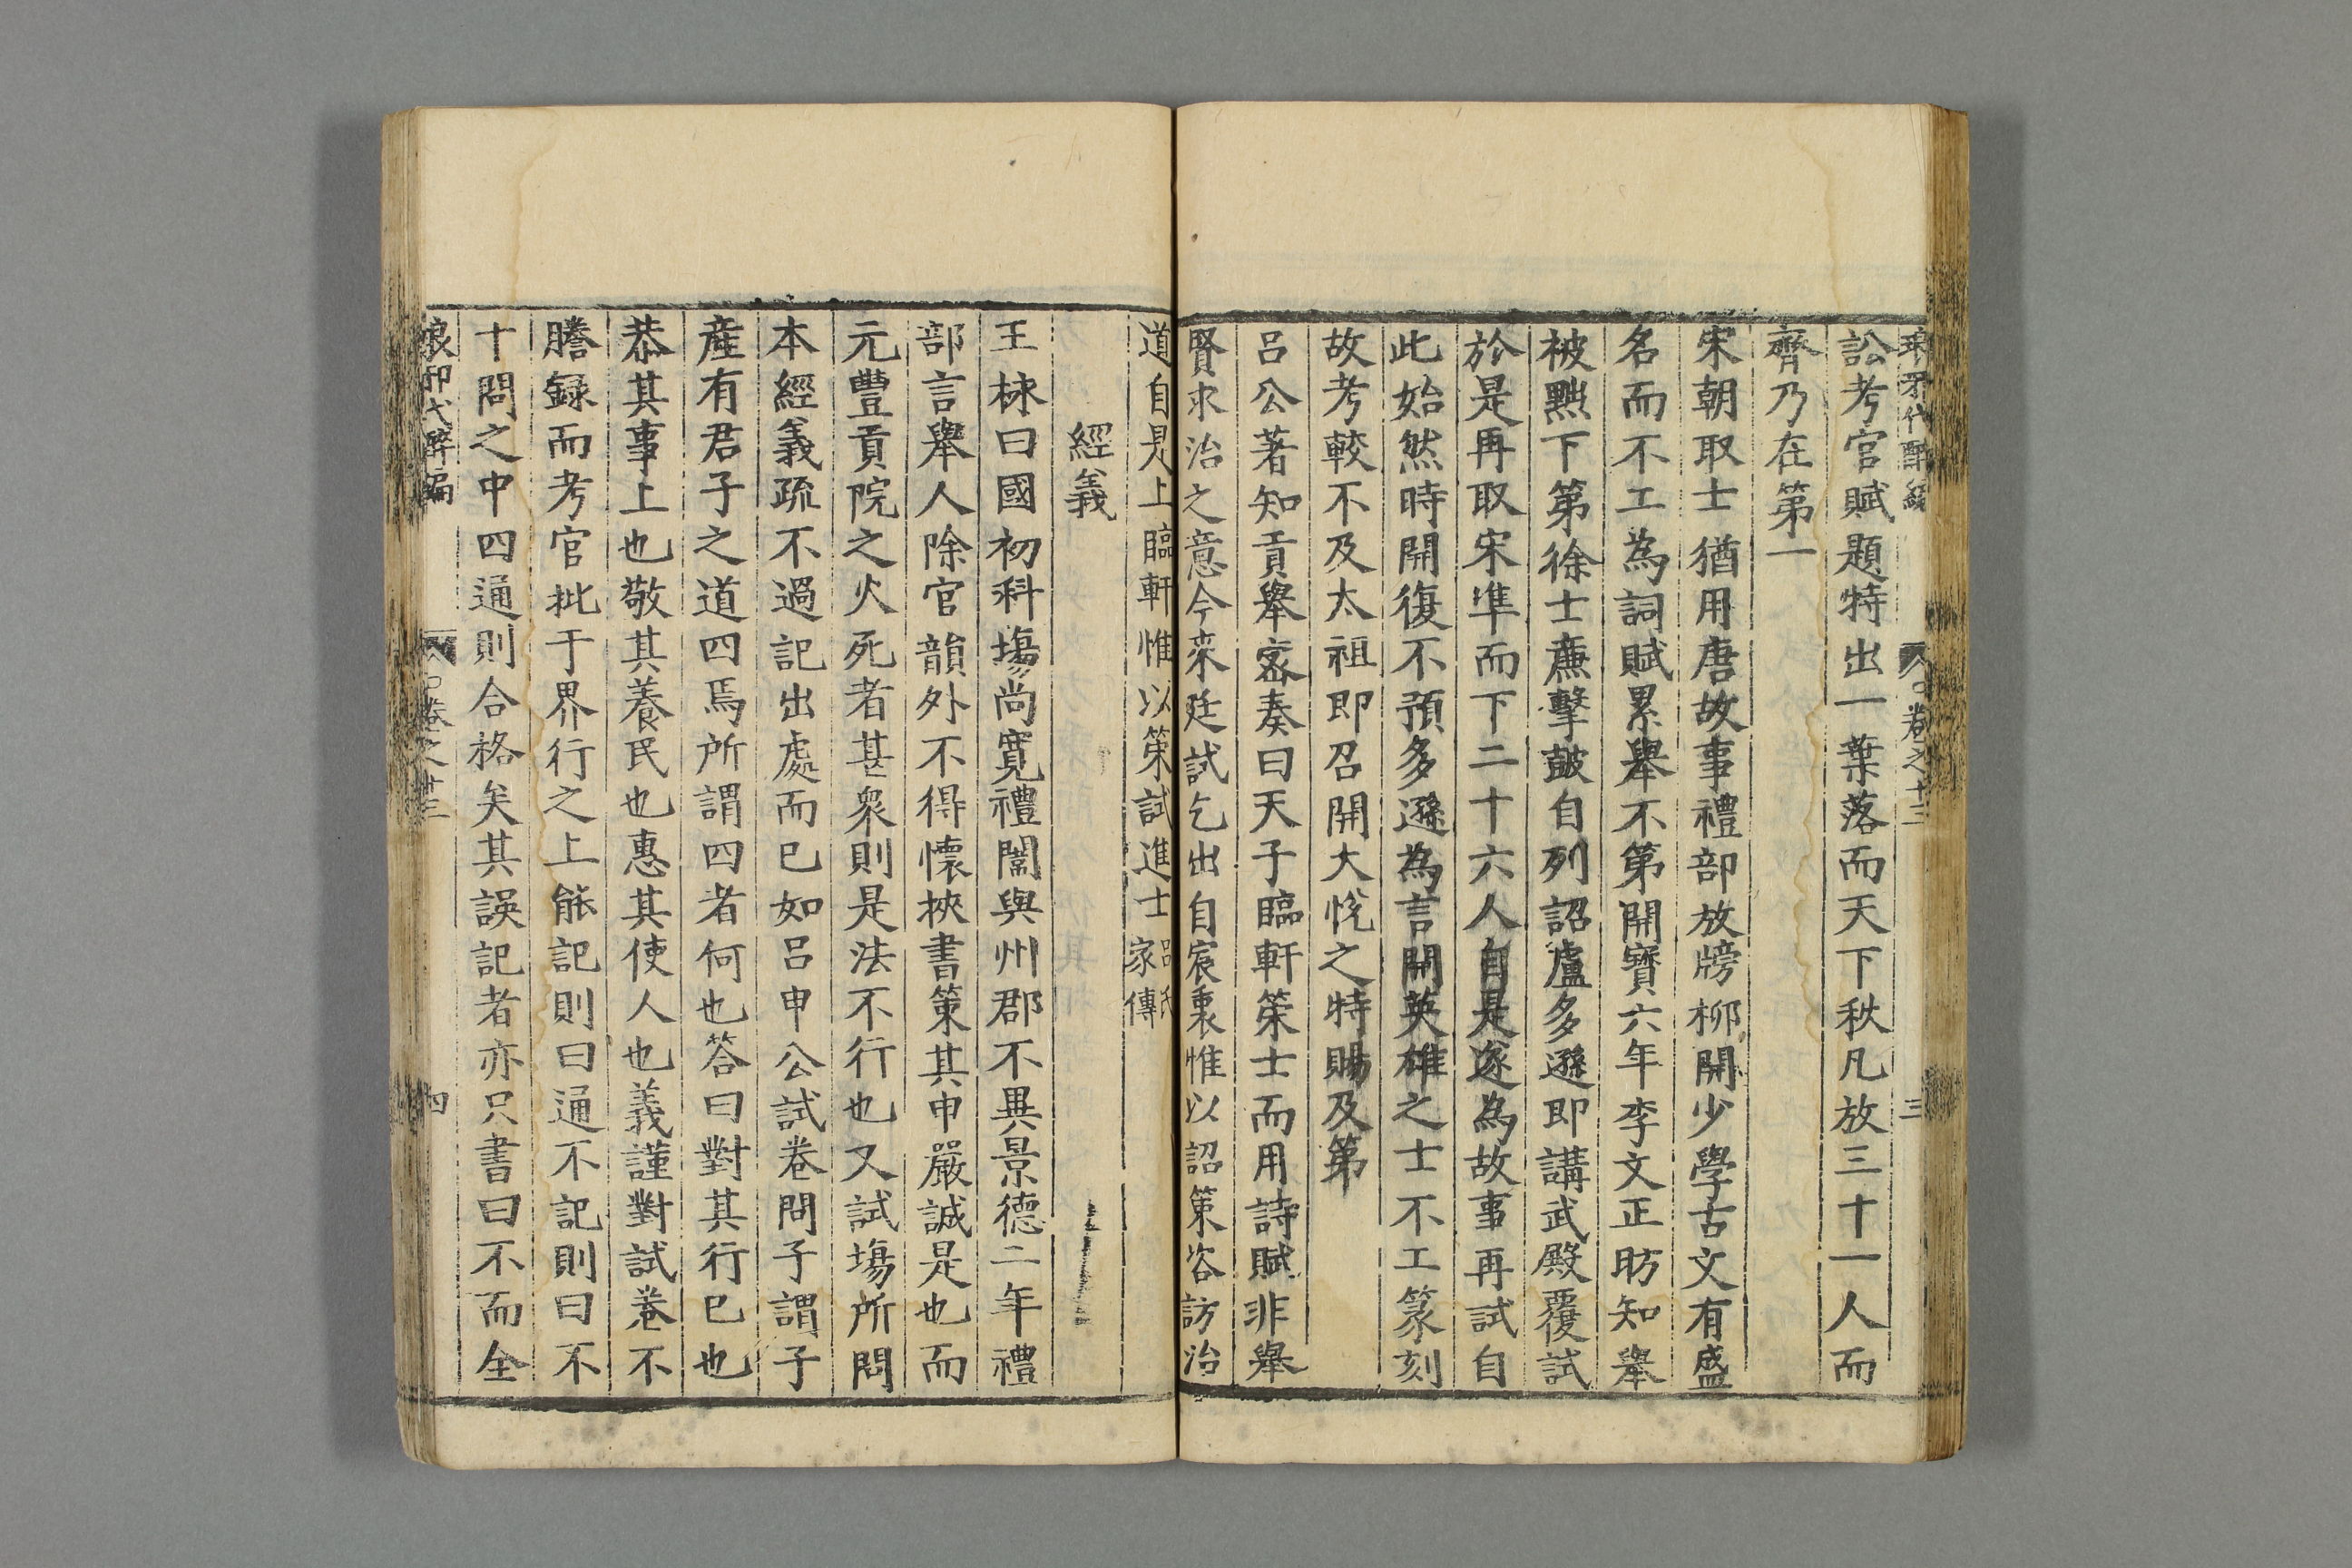 瑯琊代醉編 卷之十三 三
訟考官賦題特出一葉落而天下秋凡放三十一人而
齊乃在第一
宋朝取士猶用唐故事禮部放牓柳開少學古文有盛
名而不工為詞賦累舉不第開寶六年李文正昉知舉
被黜下第徐士廉擊皷自列詔盧多遜即講武殿覆試
於是再取宋準而下二十六人自是遂為故事再試自
此始然時開復不預多遜為言開英雄之士不工篆刻
故考較不及太祖即召開大悅之特賜及第
呂公著知貢舉密奏曰天子臨軒策士而用詩賦非舉
賢求治之意今來廷試乞出自宸衷惟以詔策咨訪治
道自是上臨軒惟以策試進士呂氏家傳
經義
王栐曰國初科塲尚寬禮闈與州郡不異景德二年禮
部言舉人除官韻外不得懷挾書策其申嚴誠是也而
元豐貢院之火死者甚衆則是法不行也又試塲所問
本經義疏不過記出處而已如呂申公試卷問子謂子
產有君子之道四焉所謂四者何也答曰對其行巳也
恭其事上也敬其養民也惠其使人也義謹對試卷不
謄録而考官批于界行之上能記則曰通不記則曰不
十問之中四通則合格矣其誤記者亦只書曰不而全
琅琊代醉編 卷之十三 四